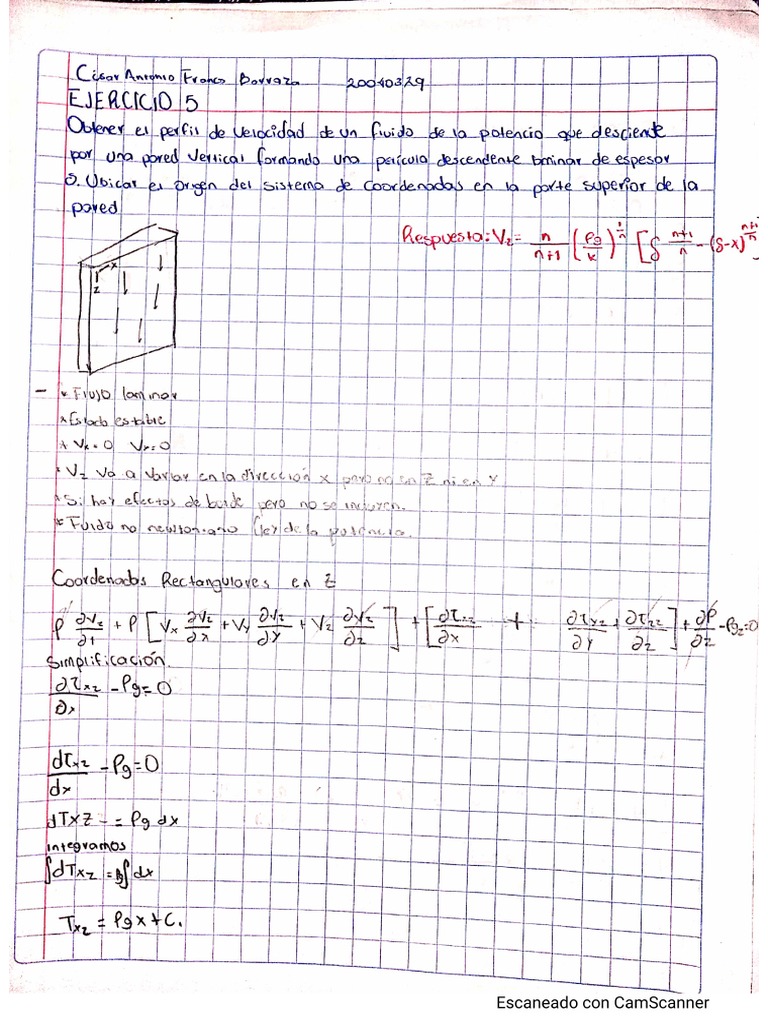 César Antonio Franco Barraza 20040329
EJERCICIO 5
Obtener el perfil de velocidad de un fluido de la potencio que desciente
por una pared vertical formando una película descendente laminar de espesor
δ. Ubicar el origen del sistema de coordenadas en la parte superior de la
pared
Respuesta: Vz = n/(n+1) (ρg/k)^(1/n) [δ^((n+1)/n) - (δ-x)^((n+1)/n)]
x
z
- * Flujo laminar
* Estado estable
* Vx=0 Vy=0
* Vz va a variar en la dirección x pero no en z ni en Y
* Si hay efectos de borde pero no se incluyen.
* Fluido no newtoniano (ley de la potencia.
Coordenadas Rectangulares en z
ρ ∂Vz/∂t + ρ [Vx ∂Vz/∂x + Vy ∂Vz/∂y + Vz ∂Vz/∂z] + [∂τxz/∂x + ∂τyz/∂y + ∂τzz/∂z] + ∂P/∂z - ρgz=0
Simplificación.
∂τxz/∂x - ρg=0
dτxz/dx - ρg=0
dτxz = ρg dx
integramos
∫dτxz = ρg∫dx
τxz = ρgx + C1
Escaneado con CamScanner